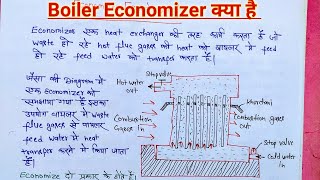 Boiler Economizer क्या है
Economizer एक heat exchanger की तरह कार्य करता है जो
waste हो रहे hot flue gases की heat को बायलर में feed
हो रहे feed water को transfer करता है।
जैसा की Diagram में
एक economizer को
समझाया गया है इसका
उपयोग बायलर में waste
flue gases से बायलर
feed water में heat
transfer करने में किया जाता
है।
Economize दो प्रकार के होते हैं।
Stop valve
Hot water
out
Combustion
Gases in
Combustion gases
out
Stop valve
Cold water
in